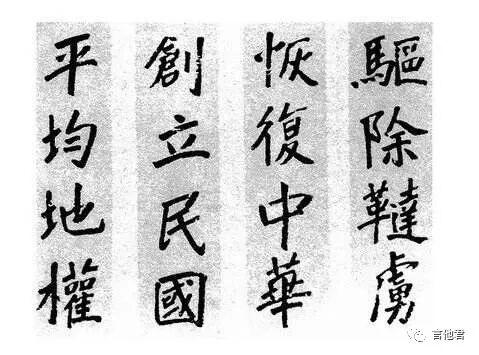 驅除韃虜
恢復中華
創立民國
平均地權
言他君